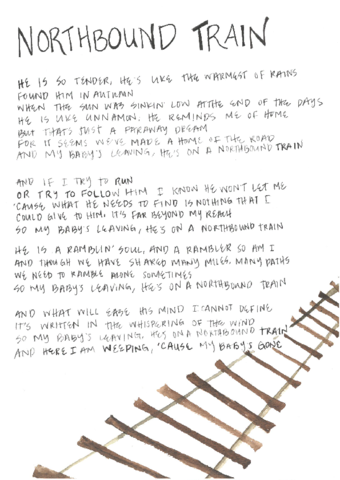 NORTHBOUND TRAIN
HE IS SO TENDER, HE'S LIKE THE WARMEST OF RAINS
FOUND HIM IN AUTUMN
WHEN THE SUN WAS SINKIN LOW AT THE END OF THE DAYS
HE IS LIKE CINNAMON, HE REMINDS ME OF HOME
BUT THATS JUST A FARAWAY DREAM
FOR IT SEEMS WE'VE MADE A HOME OF THE ROAD
AND MY BABY'S LEAVING, HE'S ON A NORTHBOUND TRAIN
AND IF I TRY TO RUN
OR TRY TO FOLLOW HIM I KNOW HE WON'T LET ME
'CAUSE WHAT HE NEEDS TO FIND IS NOTHING THAT I
COULD GIVE TO HIM, IT'S FAR BEYOND MY REACH
SO MY BABY'S LEAVING, HE'S ON A NORTHBOUND TRAIN
HE IS A RAMBLIN' SOUL, AND A RAMBLER SO AM I
AND THOUGH WE HAVE SHARED MANY MILES, MANY PATHS
WE NEED TO RAMBLE ALONE SOMETIMES
SO MY BABY'S LEAVING, HE'S ON A NORTHBOUND TRAIN
AND WHAT WILL EASE HIS MIND I CANNOT DEFINE
IT'S WRITTEN IN THE WHISPERING OF THE WIND
SO MY BABY'S LEAVING, HE'S ON A NORTHBOUND TRAIN
AND HERE I AM WEEPING, 'CAUSE MY BABY'S GONE